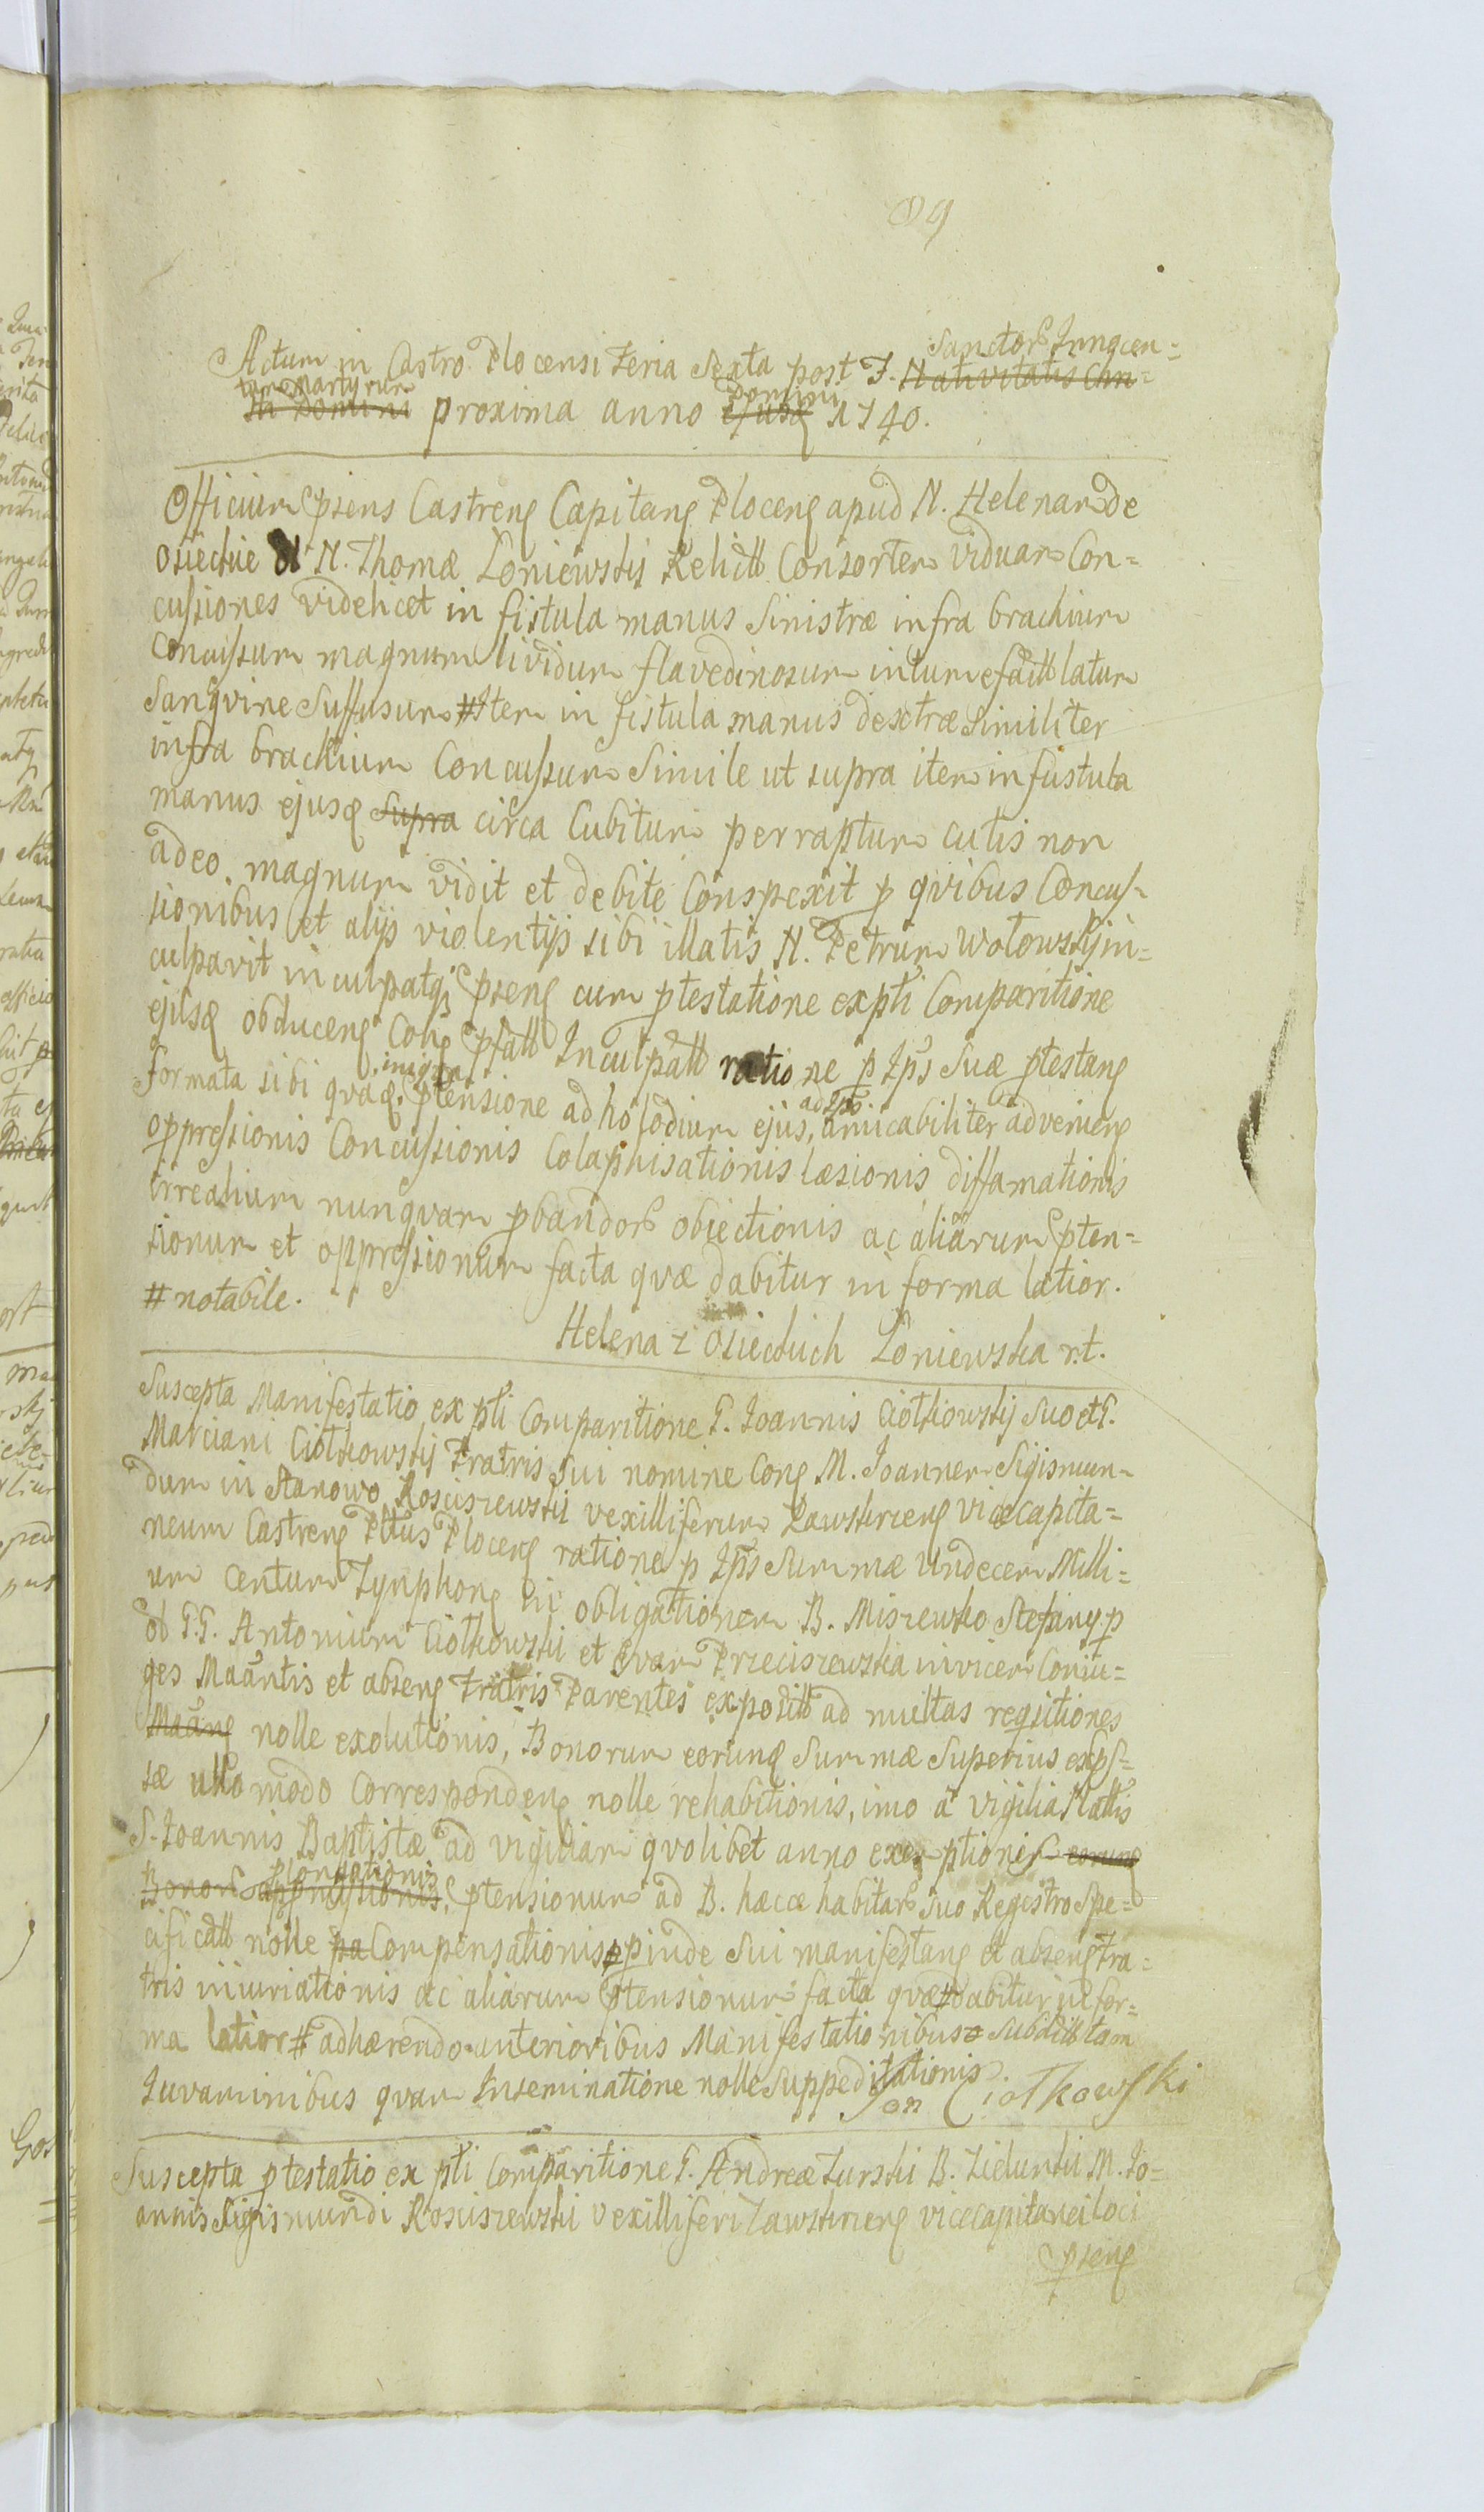 89
Sanctor Innocen=
Actum in Castro Plocensi Feria Sexta post F. Nativitatis Chri=
tum Martyrum Domini
sti Domini proxima anno ejusd 1740.
Officium psens Castreng Capitang Ploceng apud N. Helenam de
Osieckie N. Thomæ Łoniewskij Relictt Consortem viduam Con=
cussiones videlicet in fistula manus Sinistræ infra brachium
Concussum magnum lividum flavedinosum intumefactt latum
Sangvine Suffusum # Item in fistula manus dextræ Similiter
infra brachium Concussum Simile ut supra item in fustula
manus ejusd supra circa Cubitum perraptum cutis non
adeo magnum vidit et debite Conspexit p qvibus Concus=
sionibus et alijs violentijs sibi illatis N. Petrum Wołowskij in=
culpavit inculpatq pseng cum ptestatione ex pti Comparitione
ejusd obduceng Cong pfatt Inculpatt ratione p Ips Suæ ptestang
iniqva
formata sibi qvad ptensione ad hospodium ejus, amicabiliter advenieng
ad Ips.
oppressionis Concussionis Colaphisationis læsionis diffamationis
irrealium nunqvam pbandor obiectionis ac aliarum pten=
sionum et oppressionum facta qvæ dabitur in forma latior.
# notabile.
Helena z Osieckich Łoniewska r.t.
Suscepta Manifestatio ex pti Comparitione G. Joannis Ciołkowskij Suo et G.
Marciani Ciołkowskij Fratris Sui nomine Cong M. Joannem Sigismun=
dum in Stanowo Kosciszewski vexilliferum Zawskrzeng vicecapita=
neum Castreng Pttus Ploceng ratione p Ips Summæ Undecem Milli=
um Centum Tynphong in obligationem B. Miszewko Stefany p
ob G.G. Antonium Ciołkowski et Evam Przieciszewska invicem Coniu=
ges Maantis et abseng Fratris Parentes expositt ad multas reqsitiones
Maang nolle exolutionis, Bonorum eorund Summæ Superius exps=
sæ ullo modo Correspondeng nolle rehabitionis, imo a vigilia Nattis
S. Joannis Baptistæ ad vigiliam qvolibet anno exceptionis eorund
plongationis
Bonor, ptensionum ad B. hæcce habitar Suo Registro Spe=
cificatt nolle pa Compensationis pinde Sui manifestang et abseng Fra=
tris iniuriationis ac aliarum ptensionum facta qvæ # dabitur in for=
ma latior # adhærendo anterioribus Manifestationibus subditt tam
Juvaminibus qvam Inseminatione nolle Suppeditationis.
Jan Ciołkowski
Suscepta ptestatio ex pti Comparitione G. Andreæ Turski B. Zielunki M. Jo=
annis Sigismundi Kosciszewski vexilliferi Zawskrzeng vicecapitanei loci
pseng